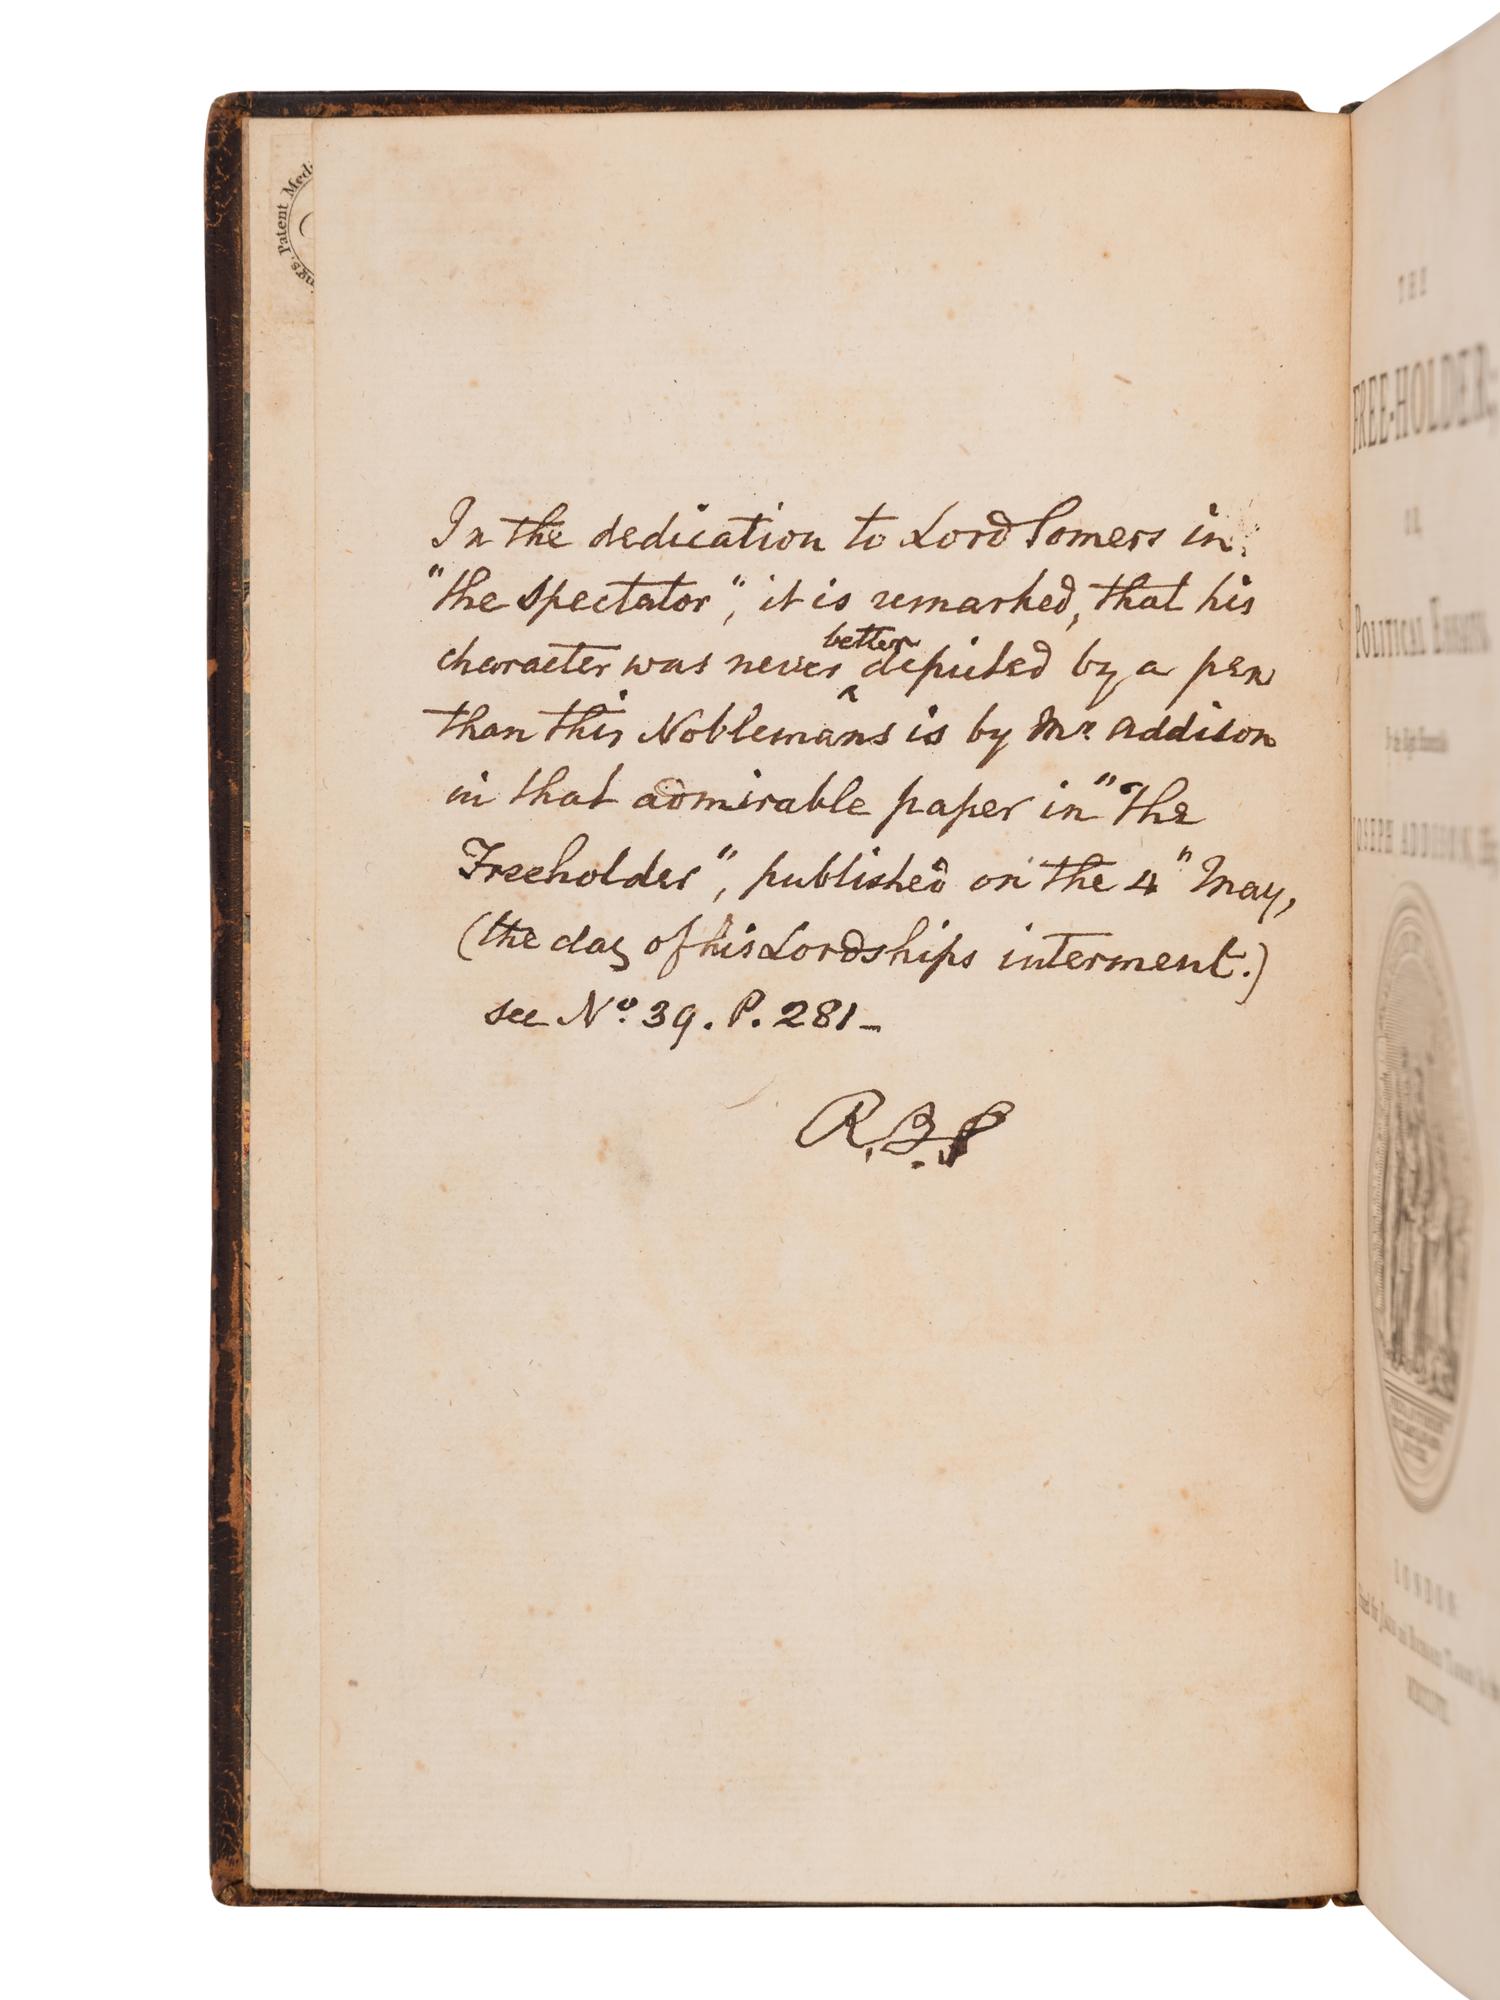 Patent Med
ngs.
In the dedication to Lord Somers in
"the Spectator", it is remarked, that his
character was never better depicted by a pen
than this Noblemans is by Mr Addison
in that admirable paper in "The
Freeholder", published on the 4" May,
(the day of his Lordships interment.)
see No. 39. P. 281-
R.B.S
THE
FREE-HOLDER;
OR
POLITICAL ESSAYS
JOSEPH ADDISON,
LONDON